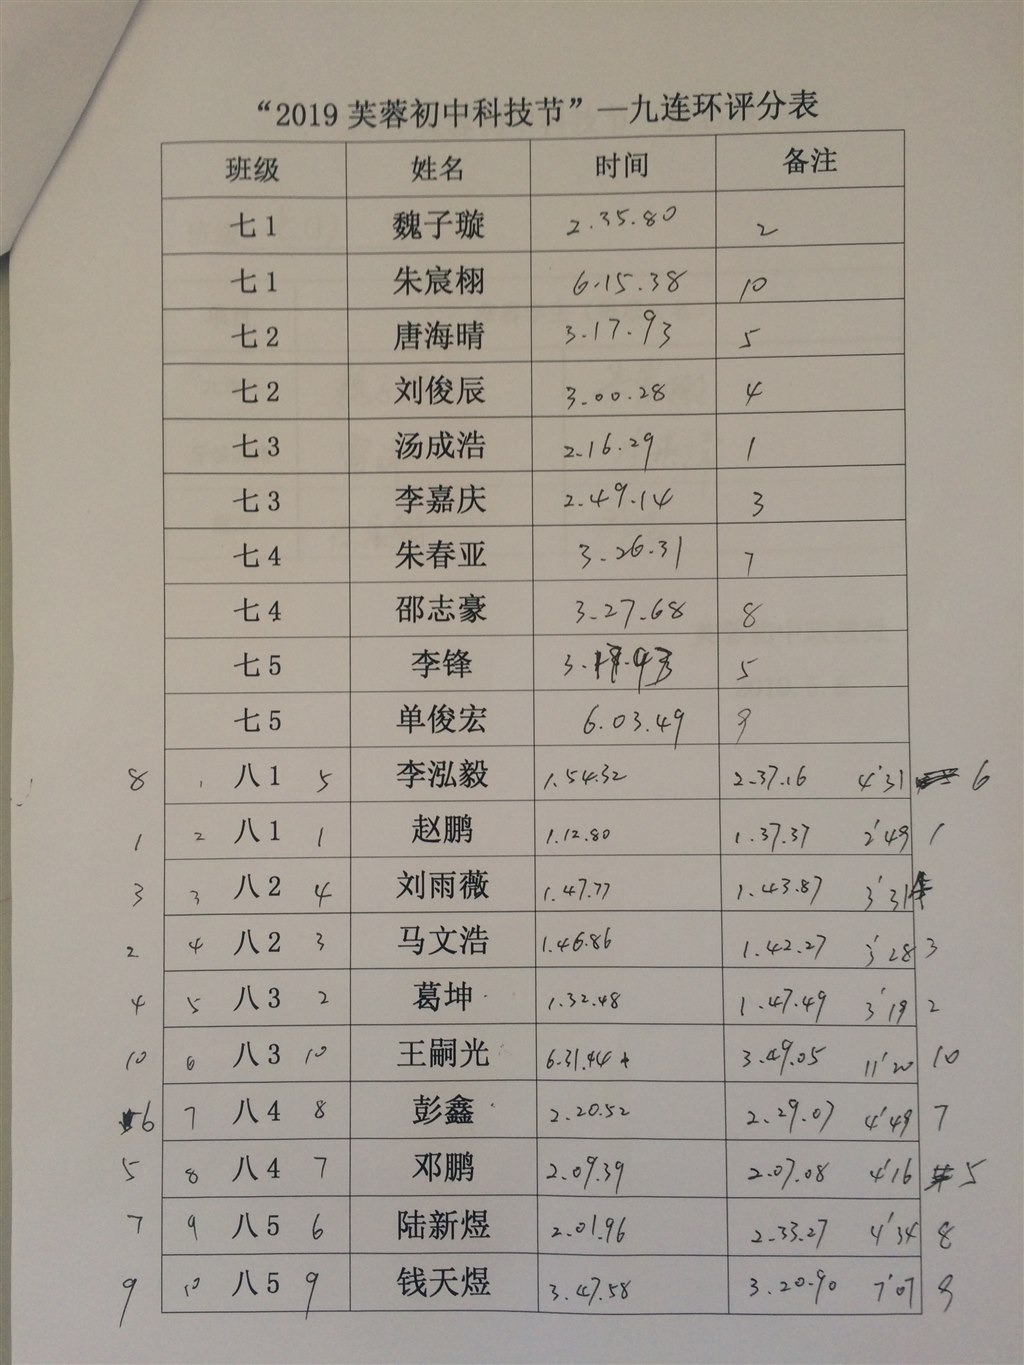 “2019芙蓉初中科技节”—九连环评分表
班级 姓名 时间 备注
七1 魏子璇 2.35.80 2
七1 朱宸栩 6.15.38 10
七2 唐海晴 3.17.93 5
七2 刘俊辰 3.00.28 4
七3 汤成浩 2.16.29 1
七3 李嘉庆 2.49.14 3
七4 朱春亚 3.26.31 7
七4 邵志豪 3.27.68 8
七5 李锋 3. 5
七5 单俊宏 6.03.49 9
8 1 八1 5 李泓毅 1.54.32 2.37.16 4'31 6
1 2 八1 1 赵鹏 1.12.80 1.37.37 2'49 1
3 3 八2 4 刘雨薇 1.47.77 1.43.87 3'31
2 4 八2 3 马文浩 1.46.86 1.42.27 3'28 3
4 5 八3 2 葛坤 1.32.48 1.47.49 3'19 2
10 6 八3 10 王嗣光 6.31.44 3.49.05 11'20 10
6 7 八4 8 彭鑫 2.20.52 2.29.07 4'49 7
5 8 八4 7 邓鹏 2.09.39 2.07.08 4'16 5
7 9 八5 6 陆新煜 2.01.96 2.33.27 4'34 8
9 10 八5 9 钱天煜 3.47.58 3.20.90 7'07 9